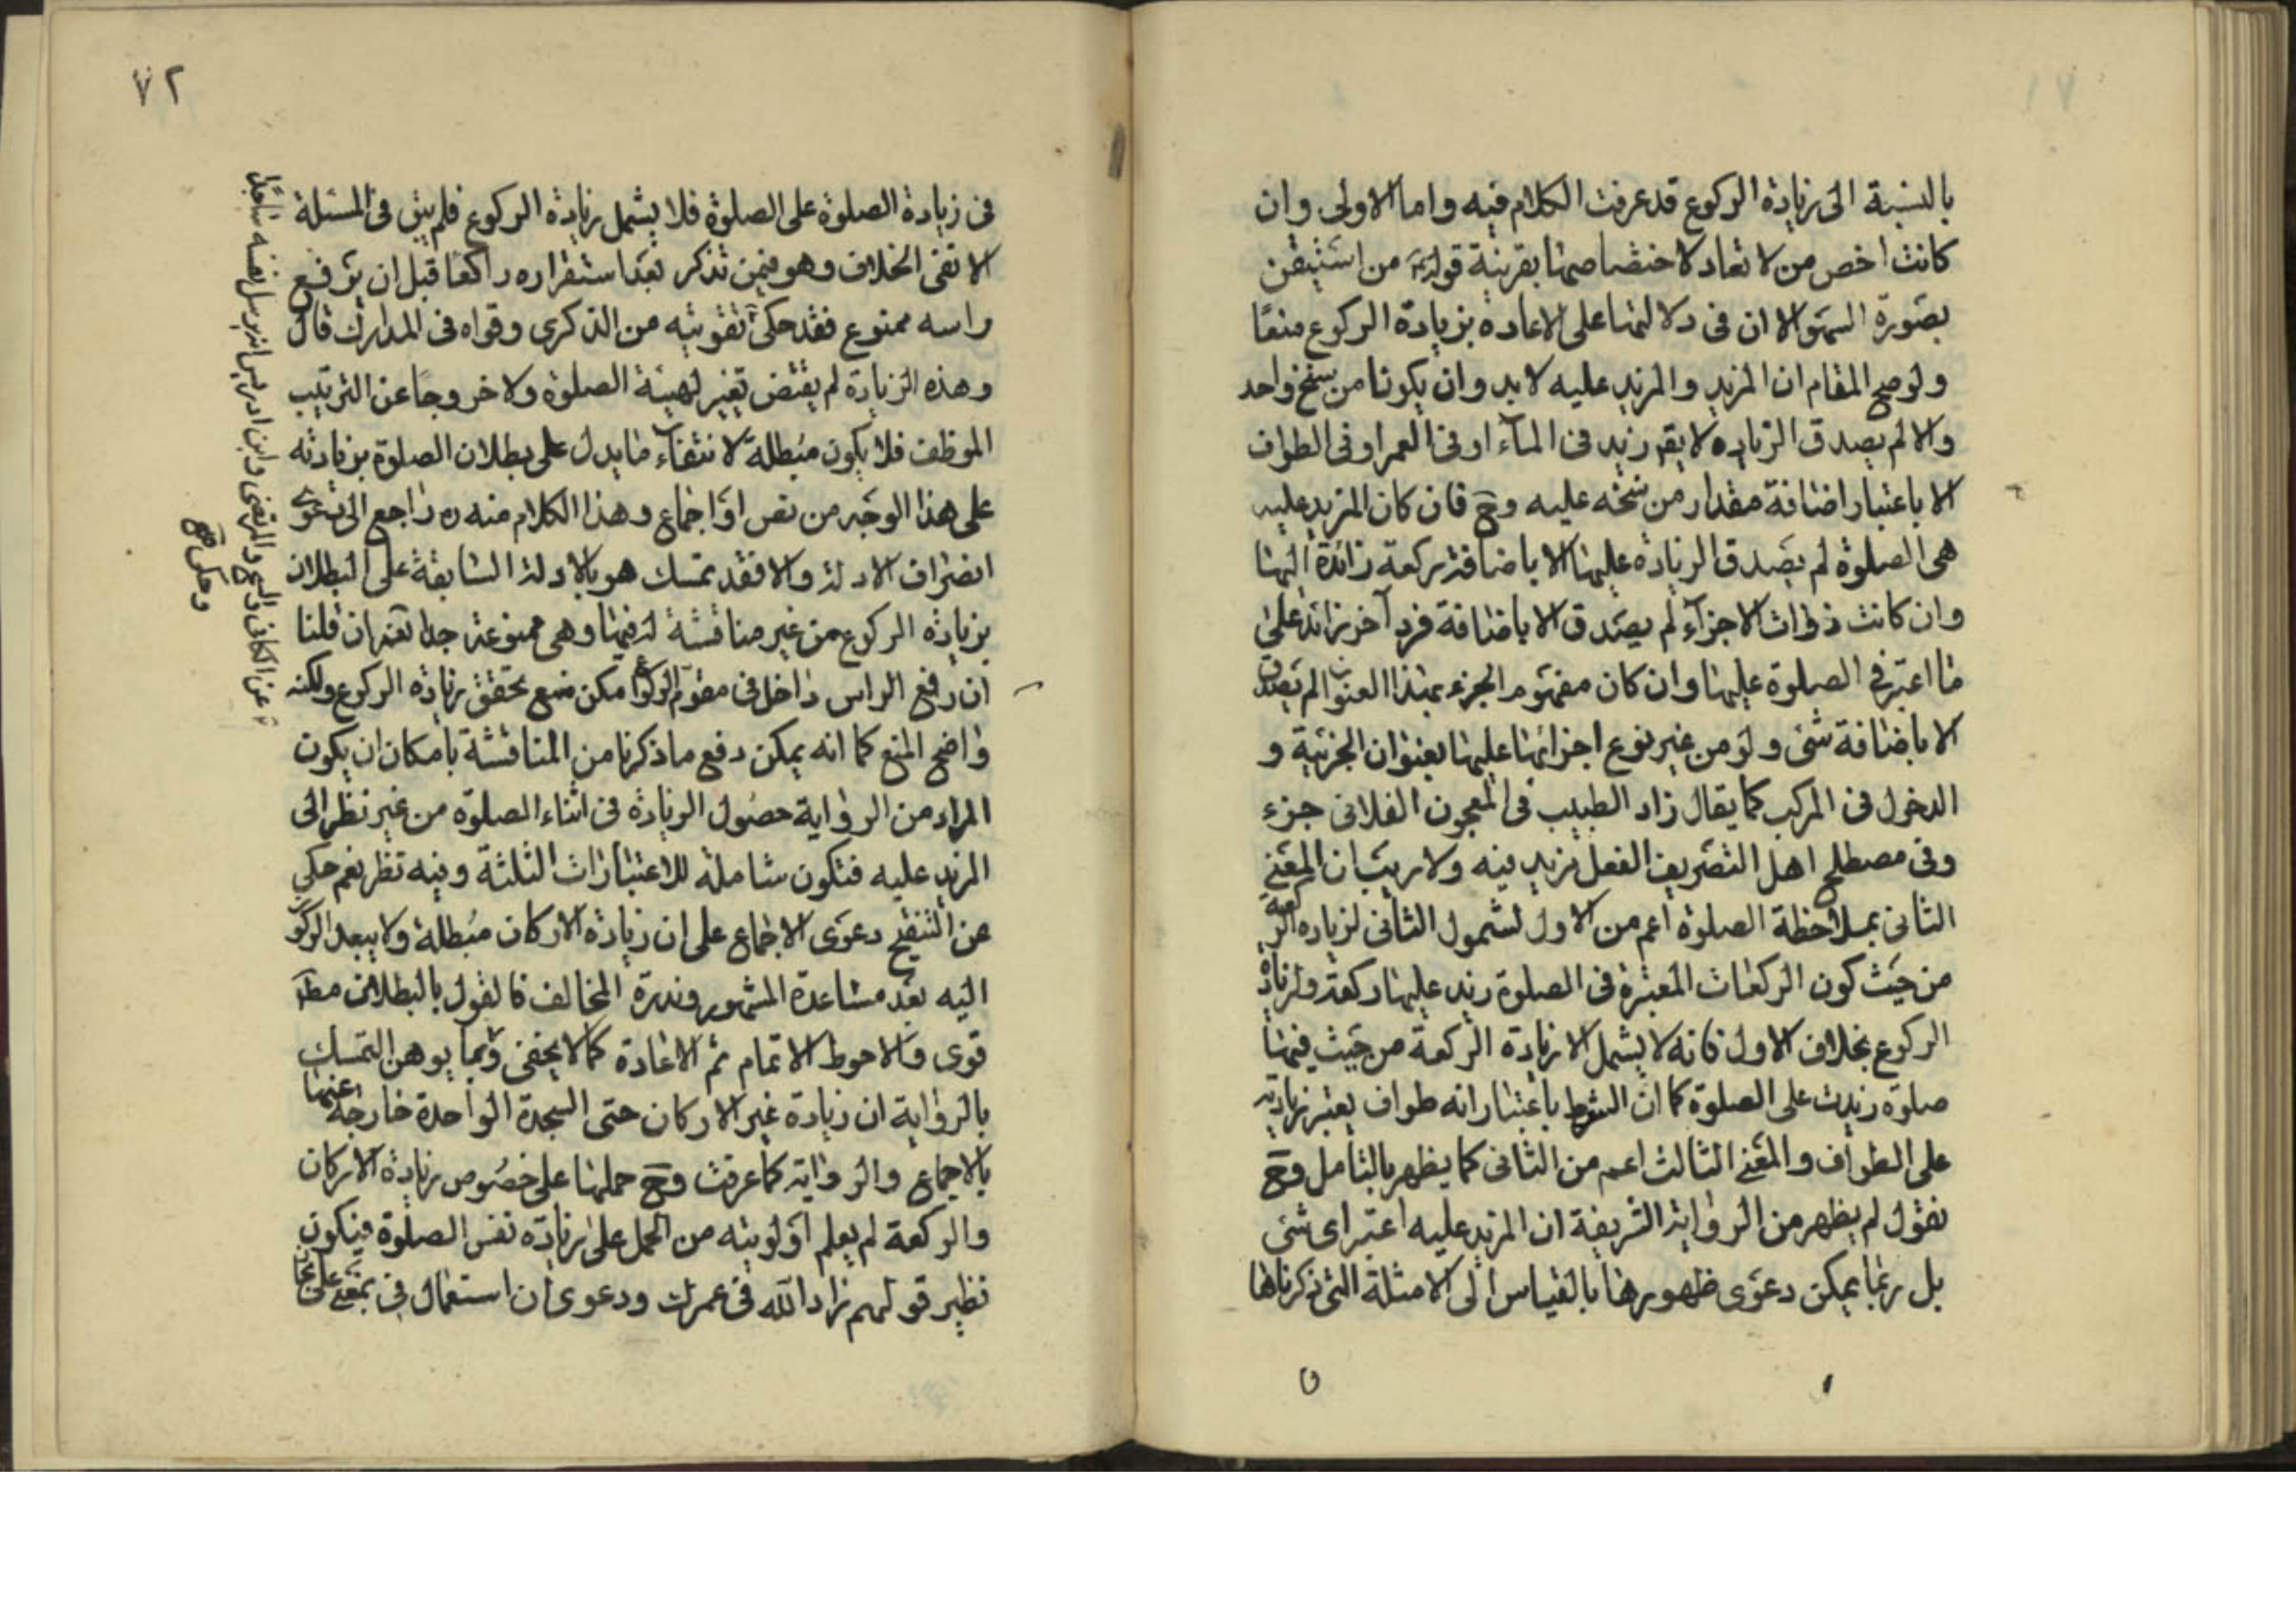 بالنسبة الى زيادة الركوع قد عرفت الكلام فيه واما الاولى وان
كانت اخص من لا تعاد لاختصاصها بقرينة قوله من استيقن
بصورة السهو الا ان فى دلالتها على الاعادة بزيادة الركوع منعًا
وتوضح المقام ان المزيد والمزيد عليه لابد وان يكونا من سنخ واحد
والا لم يصدق الزيادة لا يقم زيد فى الماء او فى العمر او فى الطواف
الا باعتبار اضافة مقدار من سنخه عليه وح فان كان المزيد عليه
هى الصلوة لم يصدق الزيادة عليها الا باضافة ركعة زائدة اليها
وان كانت ذوات الاجزاء لم يصدق الا باضافة فرد آخر زائد على
ما اعتبر فى الصلوة عليها وان كان مفهوم الجزء بهذا العنوان لم يصدق
الا باضافة شئ ولو من غير نوع اجزائها عليها بعنوان الجزئية و
الدخول فى المركب كما يقال زاد الطبيب فى المعجون الفلانى جزء
وفى مصطلح اهل التصريف الفعل مزيد فيه ولا ريب ان المعنى
الثانى بملاحظة الصلوة اعم من الاول لشمول الثانى لزيادة الركعة
من حيث كون الركعات المعتبرة فى الصلوة زيد عليها ركعة ولزيادة
الركوع بخلاف الاول فانه لا يشمل الا زيادة الركعة من حيث فيها
صلوة زيدت على الصلوة كما ان الشوط باعتبار انه طواف يعتبر زيادته
على الطواف والمعنى الثالث اعم من الثانى كما يظهر بالتامل وح
نقول لم يظهر من الرواية الشريفة ان المزيد عليه اعتبر اى شئ
بل ربما يمكن دعوى ظهورها بالقياس الى الامثلة التى ذكرناها
٧٢
فى زيادة الصلوة على الصلوة فلا يشمل زيادة الركوع فلم يبق فى المسئلة
الا نفى الخلاف وهو فيمن تذكر بعد استقراره راكعًا قبل ان يرفع
راسه ممنوع فقد حكى تقويته من الذكرى وقواه فى المدارك قال
وهذه الزيادة لم يقتض تغيير لهيئة الصلوة ولا خروجًا عن الترتيب
الموظف فلا يكون مبطلة لانتفاء ما يدل على بطلان الصلوة بزيادته
على هذا الوجه من نص او اجماع وهذا الكلام منه ره راجع الى دعوى
انصراف الادلة والا فقد تمسك هو بالادلة السابقة على البطلان
بزيادة الركوع من غير مناقشة له فيها وهى ممنوعة جدا نعم ان قلنا
ان رفع الراس داخل فى مقوم الركوع امكن منع تحقق زيادة الركوع ولكنه
واضح المنع كما انه يمكن دفع ما ذكرنا من المناقشة بامكان ان يكون
المراد من الرواية حصول الزيادة فى اثناء الصلوة من غير نظر الى
المزيد عليه فتكون شاملة للاعتبارات الثلثة وفيه نظر نعم حكى
عن التنقيح دعوى الاجماع على ان زيادة الاركان مبطلة ولا يبعد الركون
اليه بعد مساعدة المشهور وندرة المخالف فالقول بالبطلان مطلقا
قوى والاحوط الاتمام ثم الاعادة كما لا يخفى ومما يوهن التمسك
بالرواية ان زيادة غير الاركان حتى السجدة الواحدة خارجة عنها
بالاجماع والرواية كما عرفت وح حملها على خصوص زيادة الاركان
والركعة لم يعلم اولويته من الحمل على زيادة نفس الصلوة فيكون
نظير قولهم زاد الله فى عمرك ودعوى ان استعمال فى بمعنى على
عن الكافى والشيخ والمرتضى وابن ادريس انه يرسل نفسه
وحكى